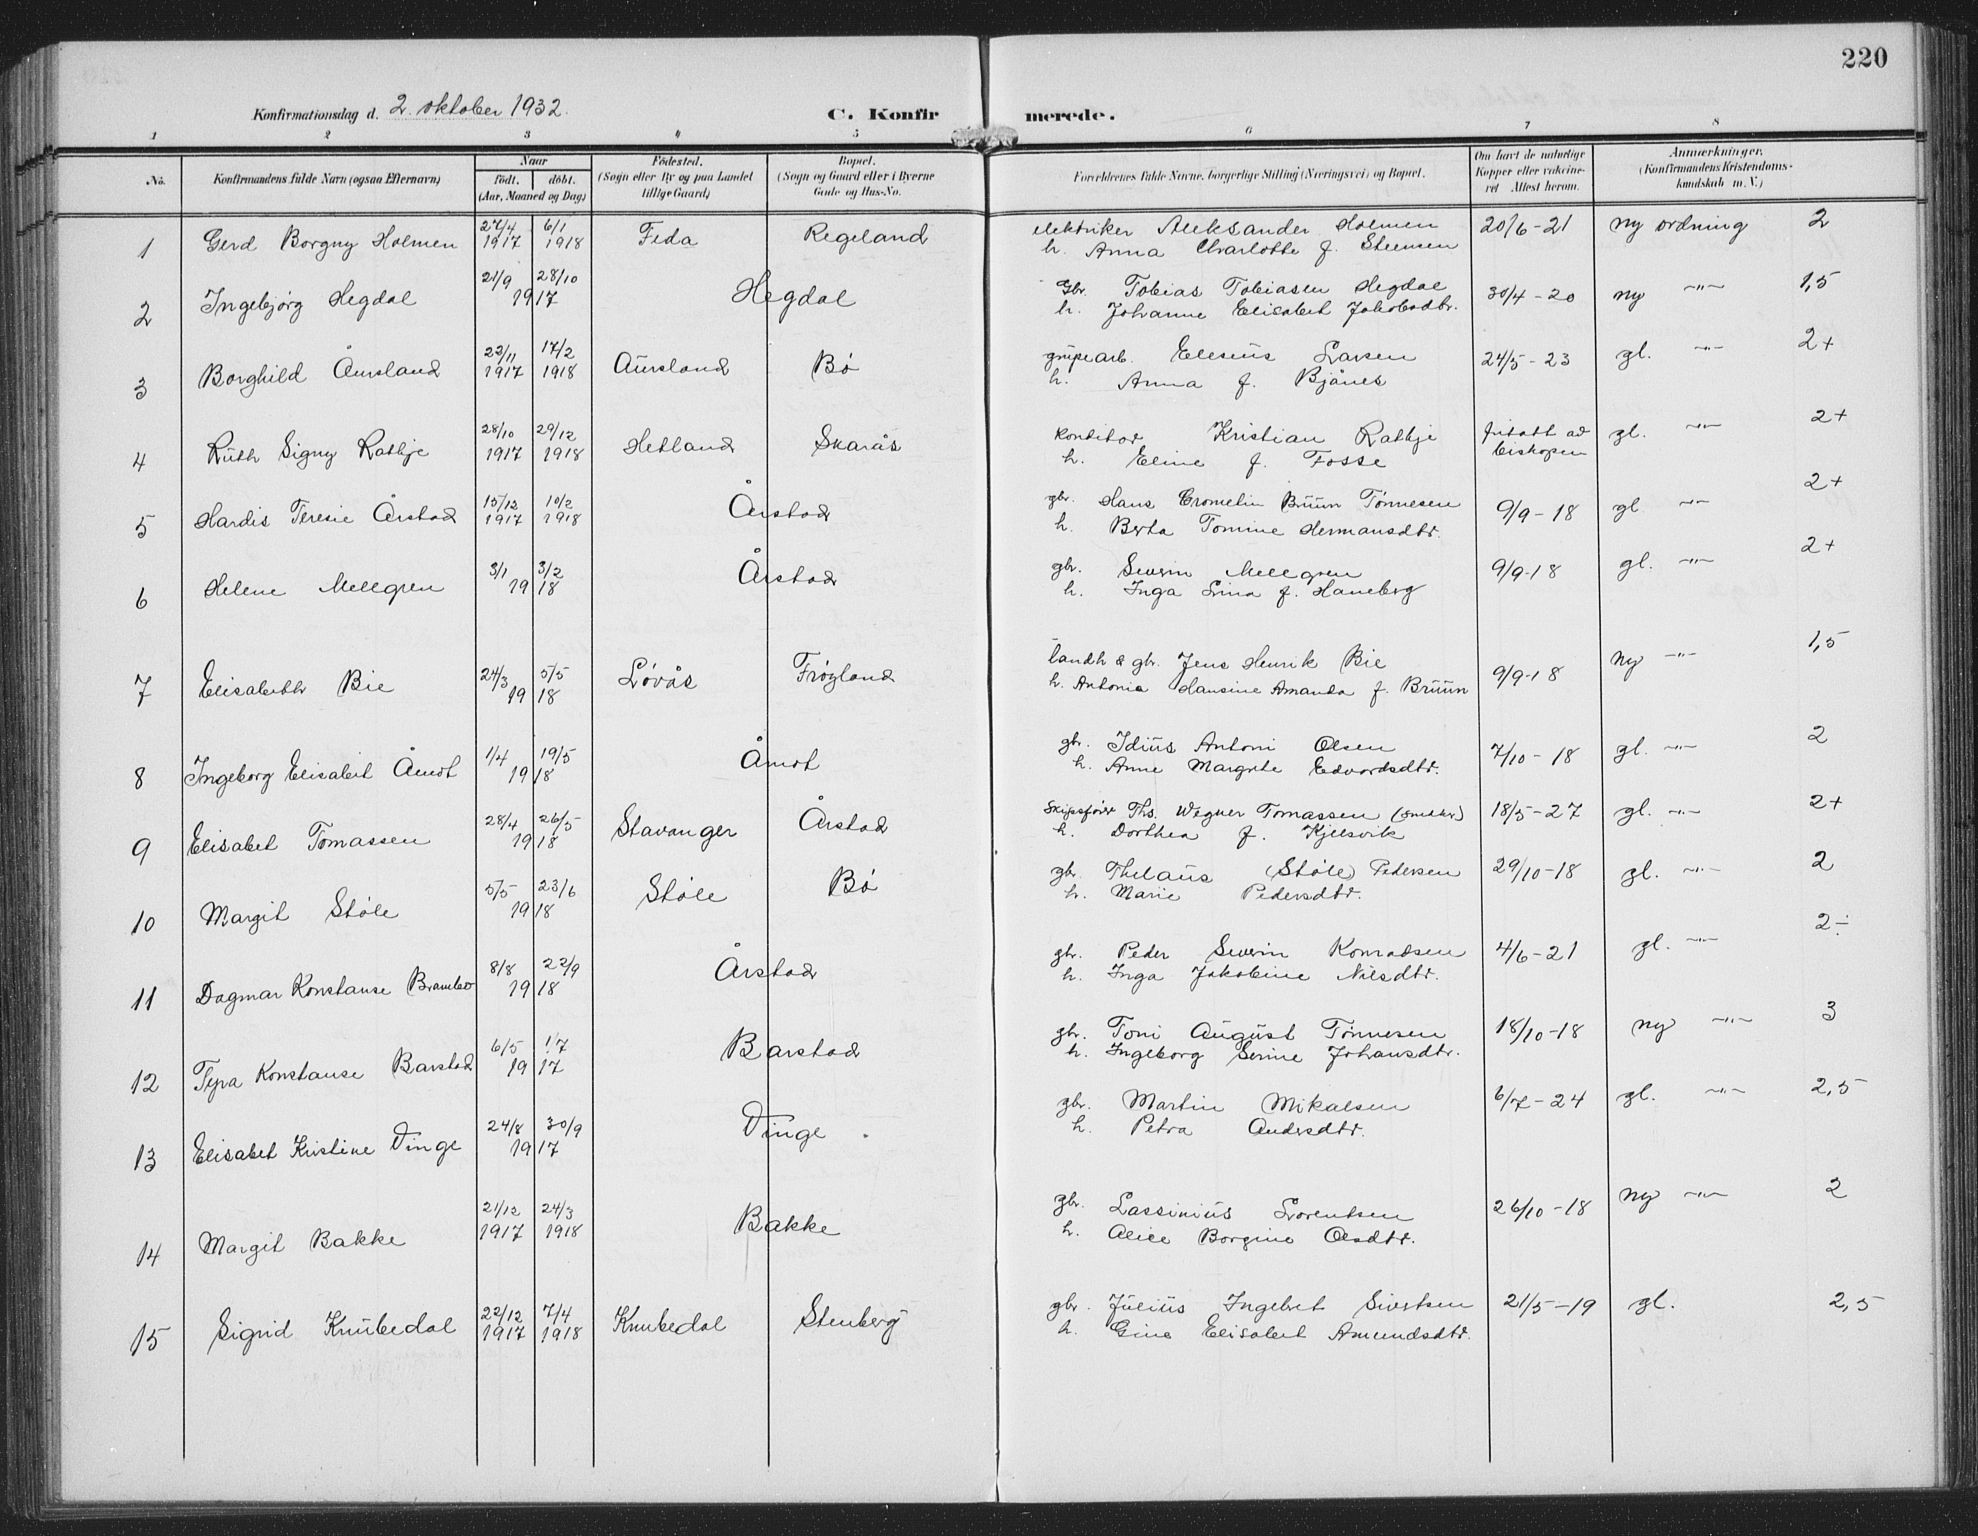 220
Konfirmationsdag d. 2. oktober 1932.
C. Konfirmerede.
1 2 3 4 5 6 7 8
No. Konfirmandens fulde Navn (ogsaa Efternavn) Naar Födt. döbt. (Aar, Maaned og Dag) Födested. (Sogn eller By og paa Landet tillige Gaard) Bopæl. (Sogn og Gaard eller i Byerne Gade og Hus-No. Forældrenes fulde Navne, borgerlige Stilling (Næringsvei) og Bopæl. Om havt de naturlige Kopper eller vakcineret. Attest herom. Anmærkninger. (Konfirmandens Kristendomskundskab m. V.)
1 Gerd Borgny Holmen 27/4 1917 6/1 1918 Feda Regeland elektriker Aleksander Holmen 20/6-21 ny ordning 2
h. Anna Charlotte f. Steensen
2 Ingebjörg Hegdal 21/9 28/10 1917 Hegdal Gbr. Tobias Tobiasen Hegdal 30/4-20 ny -"- 1,5
h. Johanne Elisabet Jakobsdtr.
3 Borghild Åursland 22/11 1917 17/2 1918 Aursland Bø grubearb. Elesius Larsen 24/5-23 gl. -"- 2+
h. Anna f. Bjånes
4 Ruth Signy Rathje 28/10 1917 29/12 1918 Hetland Skarås konditor Kristian Rathje fritatt av biskopen gl. -"- 2+
h. Eline f. Fosse
5 Hardis Teresie Årstad 15/12 1917 10/2 1918 Årstad gbr. Hans Crometin Bruun Tønnesen 9/9-18 gl -"- 2+
h. Berta Tomine Hermansdtr.
6 Helene Mellgren 3/1 3/2 1918 Årstad gbr. Severin Mellgren 9/9-18 gl. -"- 2+
h. Inga Lina f. Haneberg
7 Elisabeth Bie 24/3 5/5 1918 Løvås Frøyland landh & gbr. Jens Henrik Bie 9/9-18 ny -"- 1,5
h. Antonia Hansine Amanda f. Bruun
8 Ingeborg Elisabet Åmot 1/4 19/5 1918 Åmot gbr. Idius Antoni Olsen 7/10-18 gl. -"- 2
h. Anne Margrete Edvardsdtr.
9 Elisabet Tomassen 28/4 26/5 1918 Stavanger Årstad skipsfører Ths. Wegner Tomassen 18/5-27 gl. -"- 2+
h. Dorthea f. Kjellsvik
10 Margit Støle 5/5 23/6 1918 Støle Bø gbr. Thelaus (Støle) Pedersen 29/10-18 gl. -"- 2
h. Marie Pedersdtr.
11 Dagmar Konstanse Brambo 8/8 22/9 1918 Årstad gbr. Peder Severin Konradsen 4/6-21 gl. -"- 2÷
h. Inga Jakobine Nilsdtr.
12 Tyra Konstanse Barstad 6/5 1/7 1917 Barstad gbr. Toni August Tønnesen 18/10-18 ny -"- 3
h. Ingeborg Serine Johansdtr.
13 Elisabet Kristine Vinge 24/8 30/9 1917 Vinge gbr. Martin Mikalsen 6/7-24 gl. -"- 2,5
h. Petra Andersdtr.
14 Margit Bakke 21/12 1917 24/3 1918 Bakke gbr. Lassinius Lorentsen 26/10-18 ny -"- 2
h. Alice Borgine Olsdtr.
15 Sigrid Knubedal 22/12 1917 7/4 1918 Knubedal Stenberg gbr. Julius Ingebret Sivertsen 21/5-19 gl. 2,5
h. Gine Elisabet Amundsdtr.